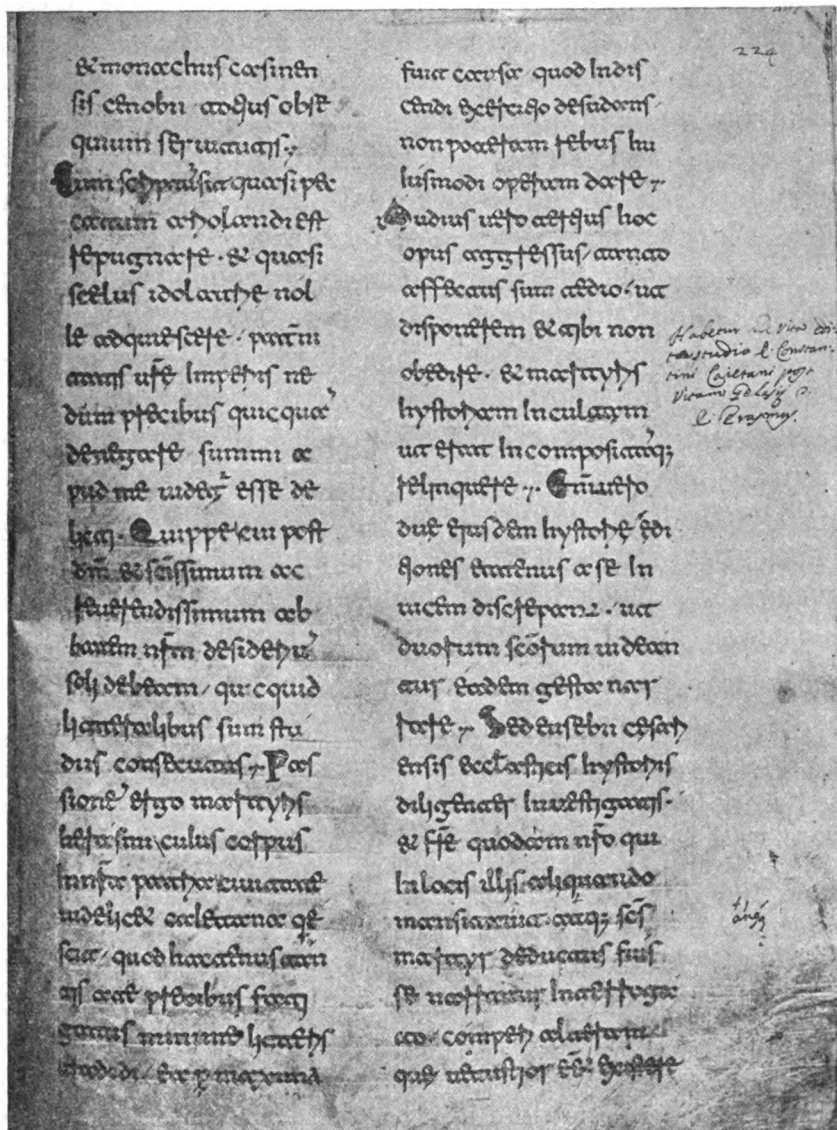 & monachus casinen
sis cenobii obse
quium seruitutis.
sit quasi pec
catum ariolandi est
repugnare · & quasi
scelus idolatrie nol
le adquiescere · pat̄ni
tatis ur̄e imperiis ne
dum precibus quicquā
denegare summi a
pud me uidet̄ esse de
licti. Quippe cui post
dm̄ & sc̄issimum ac
reuerendissimum ab
batem nr̄m desideriū
soli debeam, quicquid
litteralibus sum stu
diis consecutus. Pas
sionē ergo martyris
herasmi cuius corpus
in nr̄a patria ciuitate
uidelicet caietana qe
scit, quod hactenus tan
tis precibus fati
gatus minime litteris
tradidi, ea p maxima
224
fuit causa quod indis
cendi exercitio desudans
non poteram rebus hu
iusmodi operam dare.
uero hoc
opus aggressus, tanto
affectus sum tedio, ut
disponerem & tibi non
obedire · & martyris
hystoriam incultam
ut erat incompositāq;
relinquere. Eni̅uero
due eiusdem hystorie edi
tiones eatenus a se in
uicem discrepant · ut
duorum sc̄orum uidean
tur eadem gesta nar
rare. Sed eusebii cesari
ensis eccl̄asticis hystoriis
diligenter inuestigatis ·
& fr̄e quodam nr̄o qui
in locis illis aliquando
mansitauit · sc̄s
martyr deductus fuis
se interroga
to · comperi alteram
que uetustior
Habetur in Vita
studio Constan-
tini Caietani post
Vitam Gelasij
Erasmus.